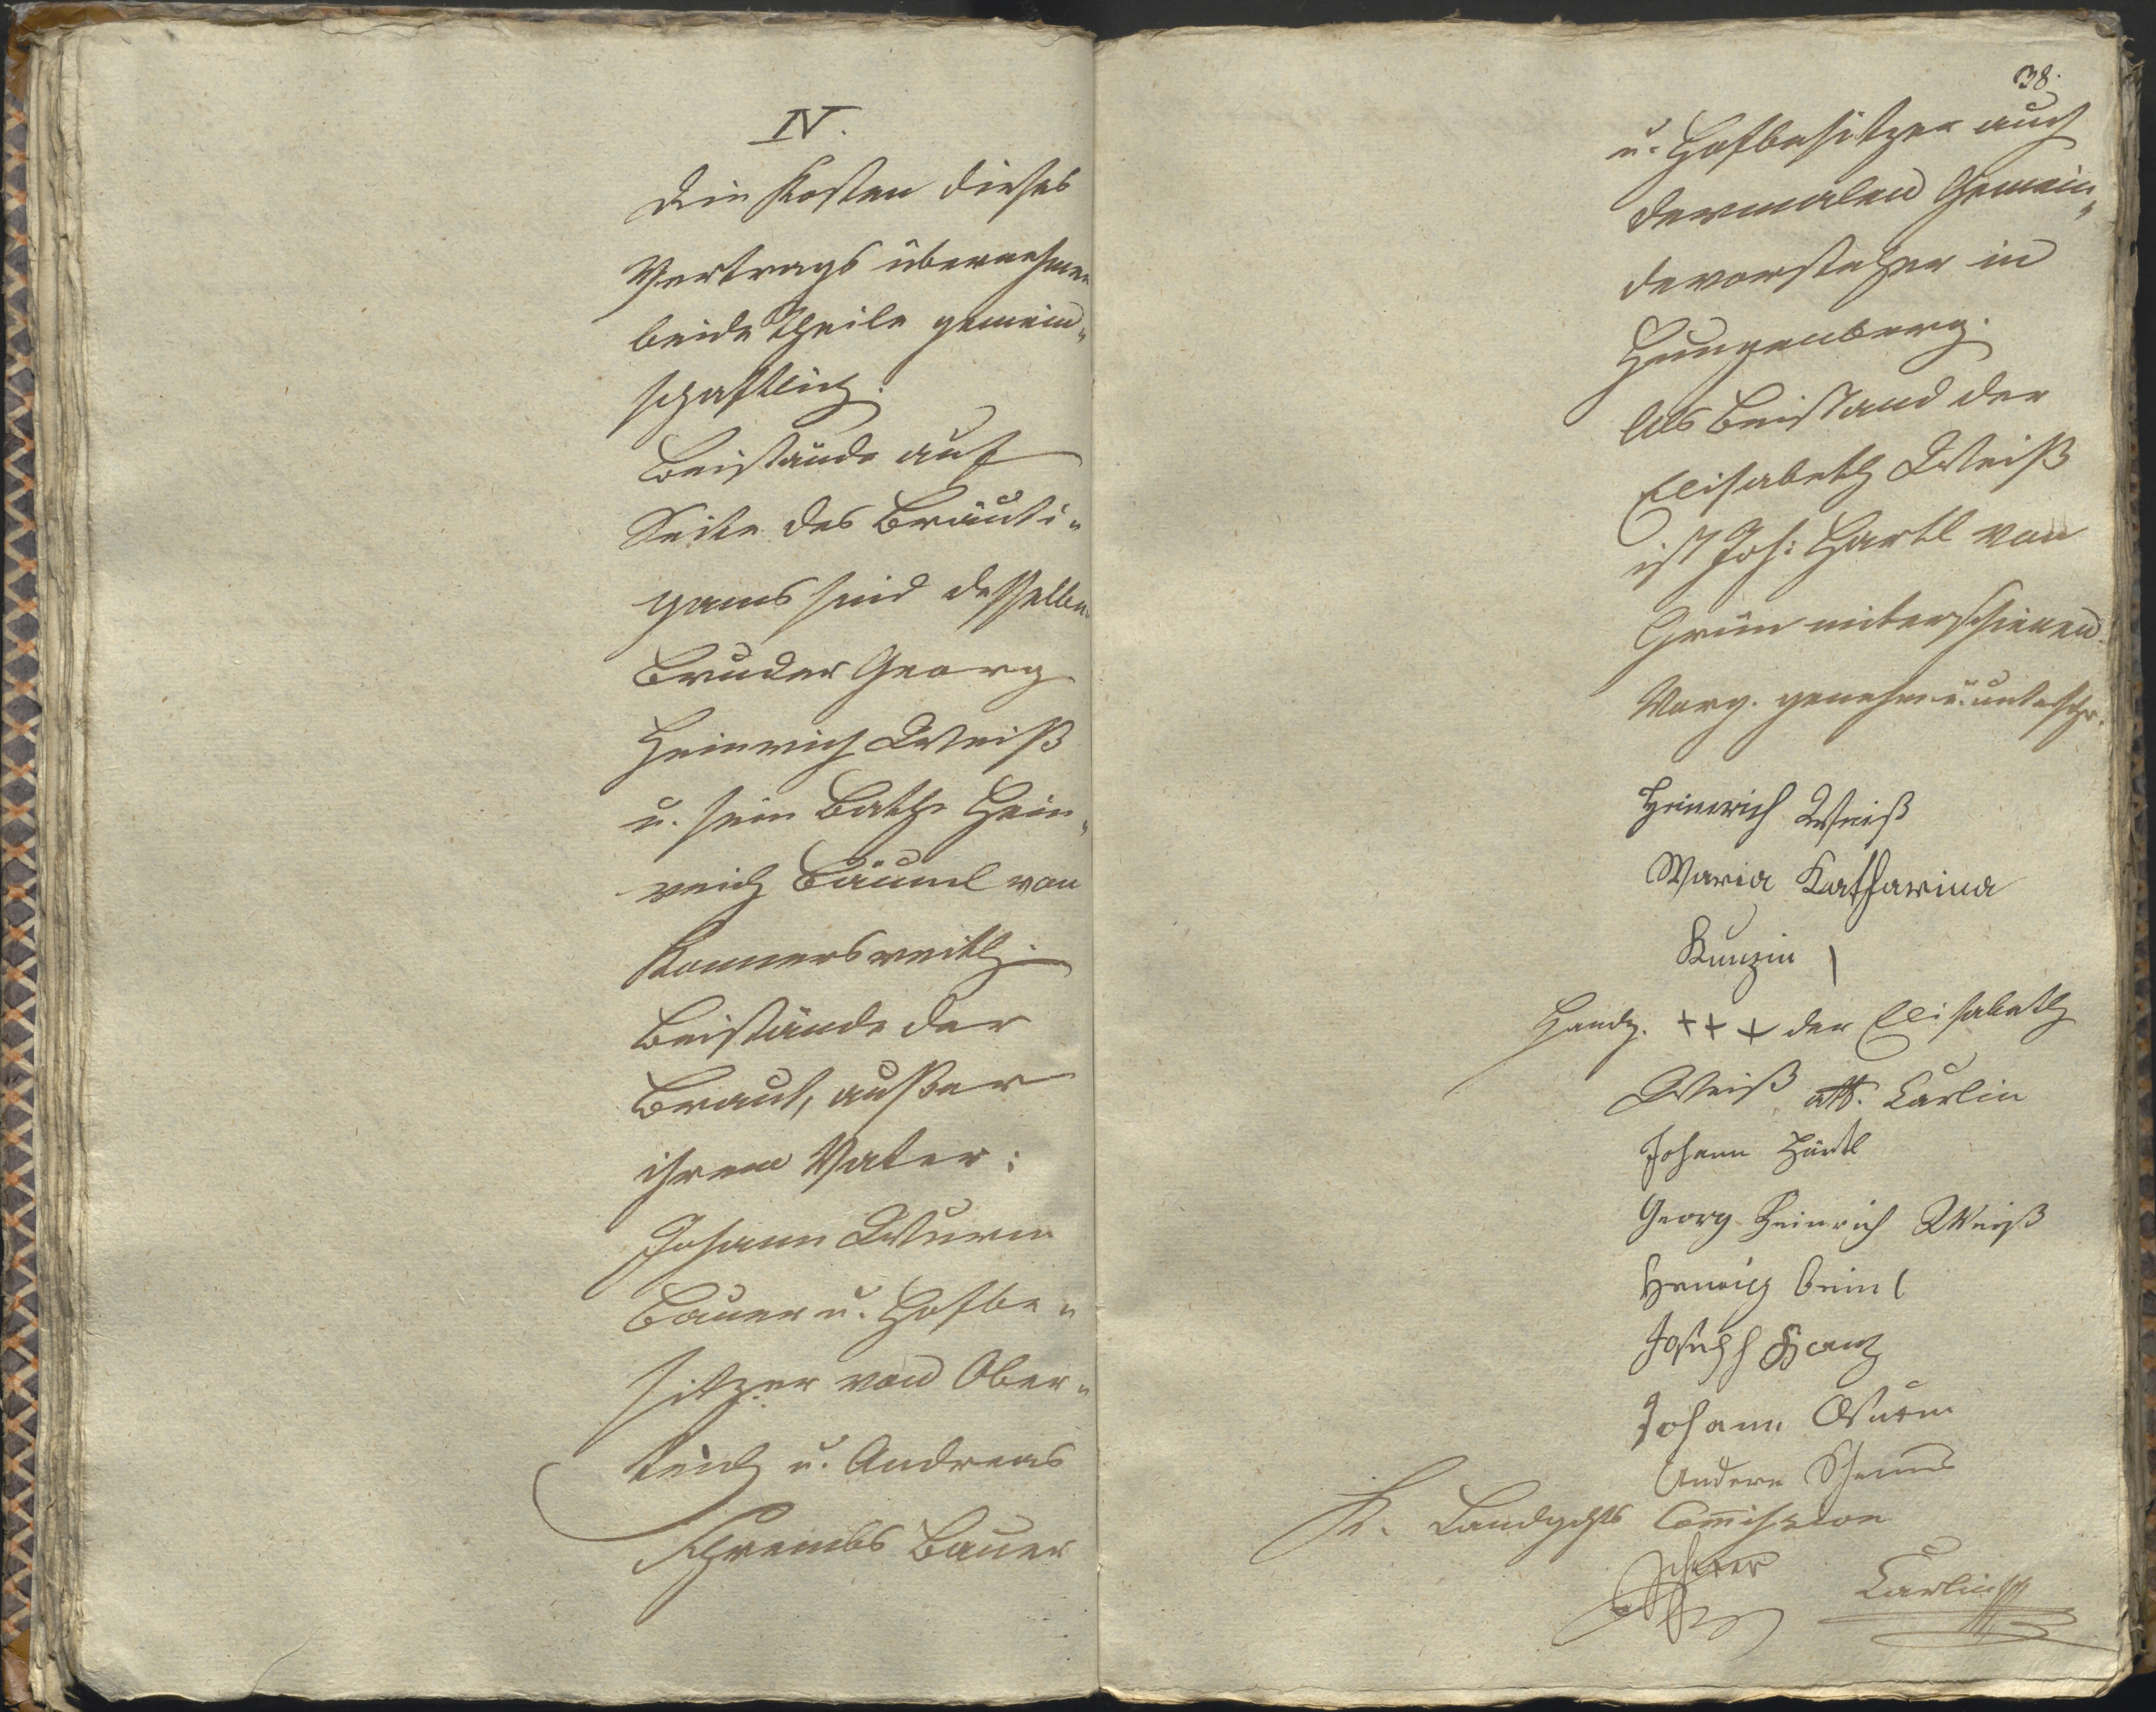 IV.
Die Kosten dieses
Vertrags übernehmen
beide Theile gemein„
schaftlich.
Beistände auf
Seite des Bräuti„
gams sind desselben
Bruder Georg
Heinrich Weiß
u. sein Bathe Hein„
reich Bäuml von
Konnersreith.
Beistände der
Braut, außer
ihrem Vater:
Johann Wurm
Bauer u. Hofbe„
sitzer von Ober„
teich u. Andreas
Schrembs Bauer
38.
u. Hofbesitzer auch
dermalen Gemein„
devorsteher in
Hungenberg.
Als Beistand der
Elisabeth Weiß
ist Joh: Hartl von
Grün miterschienen.
Vorg. genehm. u. unterschr.
Heinrich Weiß
Maria Katharina
Kunzin
Handz. +++ der Elisabeth
Weiß att. Carlin
Johann Härtl
Georg Heinrich Weiß
Henrich beiml
Joseph
Johann Wurm
Andere
K. Landgchts Commission
Carlin